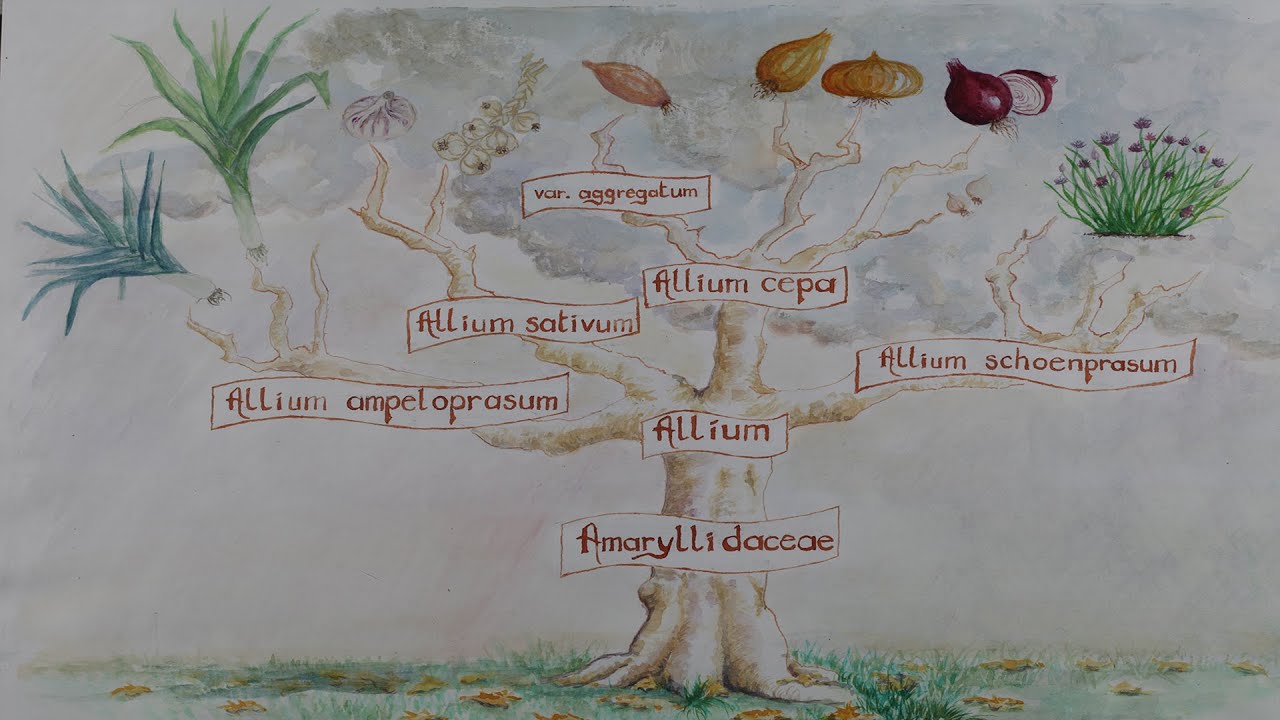 var. aggregatum
Allium cepa
Allium sativum
Allium schoenprasum
Allium ampeloprasum
Allium
Amaryllidaceae